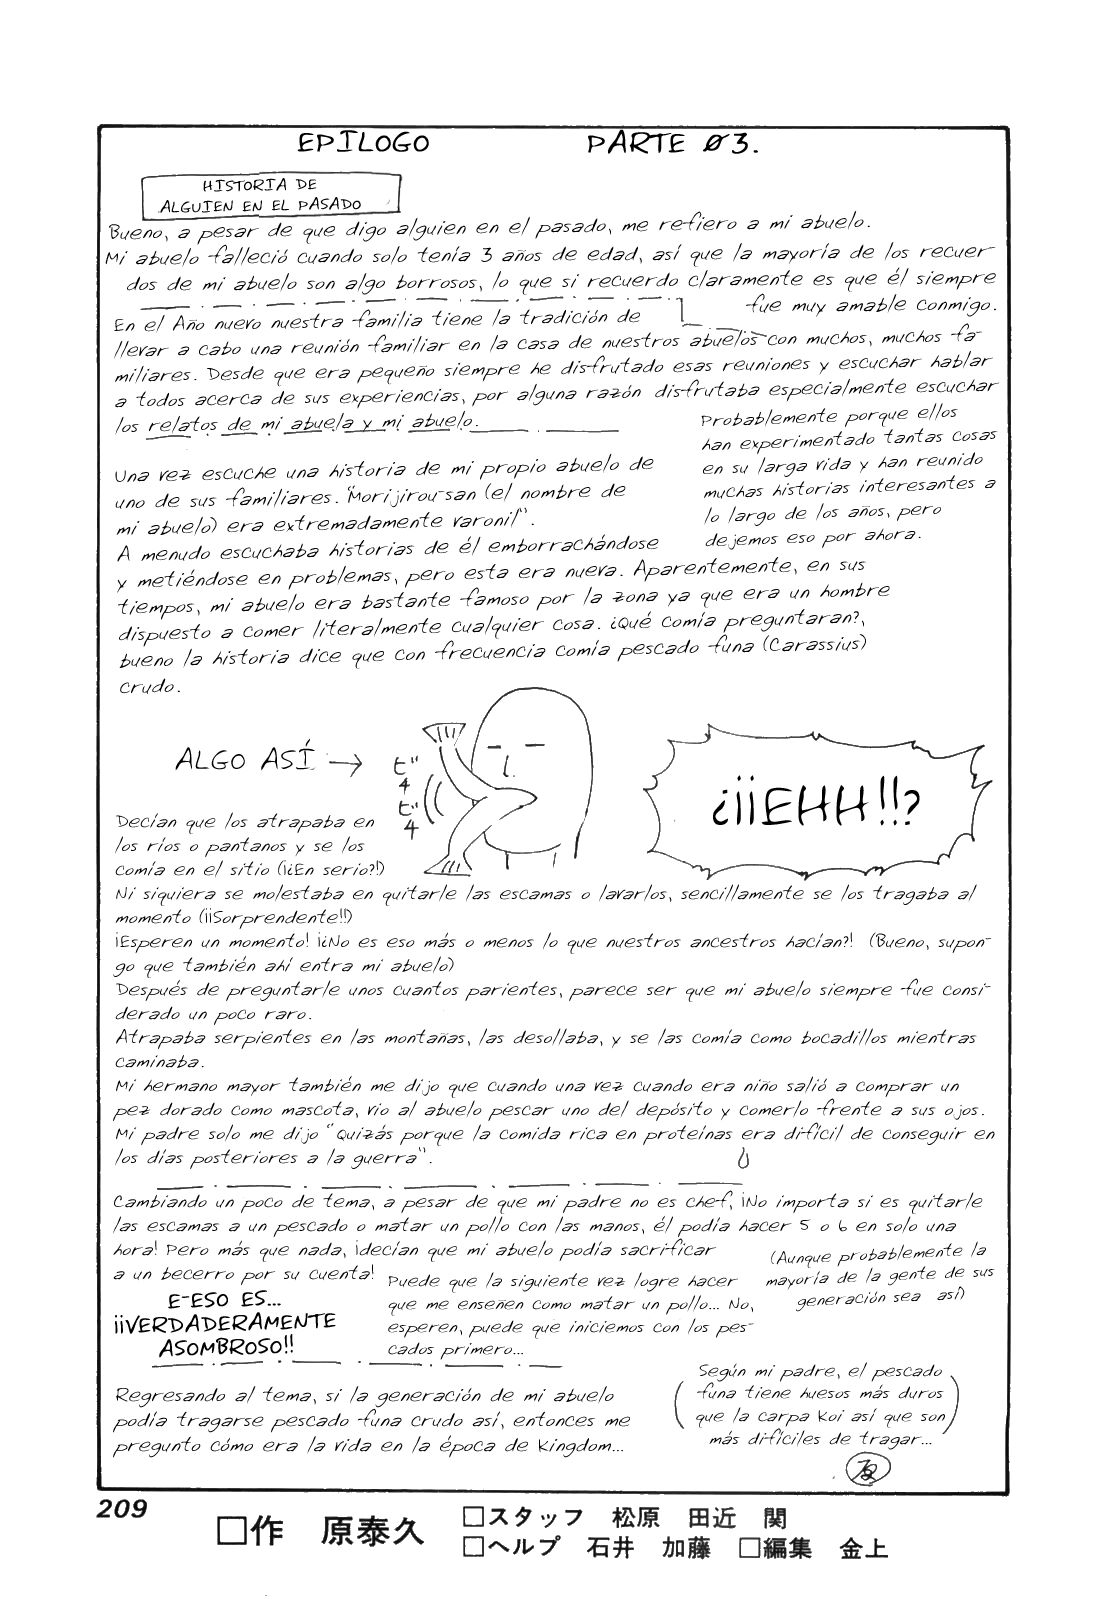 EPILOGO PARTE 03.
HISTORIA DE
ALGUIEN EN EL PASADO
Bueno, a pesar de que digo alguien en el pasado, me refiero a mi abuelo.
Mi abuelo falleció cuando solo tenía 3 años de edad, así que la mayoría de los recuer-
dos de mi abuelo son algo borrosos, lo que si recuerdo claramente es que él siempre
fue muy amable conmigo.
En el Año nuevo nuestra familia tiene la tradición de
llevar a cabo una reunión familiar en la casa de nuestros abuelos con muchos, muchos fa-
miliares. Desde que era pequeño siempre he disfrutado esas reuniones y escuchar hablar
a todos acerca de sus experiencias, por alguna razón disfrutaba especialmente escuchar
los relatos de mi abuela y mi abuelo.
Probablemente porque ellos
han experimentado tantas cosas
en su larga vida y han reunido
muchas historias interesantes a
lo largo de los años, pero
dejemos eso por ahora.
Una vez escuche una historia de mi propio abuelo de
uno de sus familiares. "Morijirou-san (el nombre de
mi abuelo) era extremadamente varonil".
A menudo escuchaba historias de él emborrachándose
y metiéndose en problemas, pero esta era nueva. Aparentemente, en sus
tiempos, mi abuelo era bastante famoso por la zona ya que era un hombre
dispuesto a comer literalmente cualquier cosa. ¿Qué comía preguntaran?,
bueno la historia dice que con frecuencia comía pescado funa (Carassius)
crudo.
ALGO ASÍ →
ビチビチ
¿¡¡EHH!!?
Decían que los atrapaba en
los ríos o pantanos y se los
comía en el sitio (¡¿En serio?!)
Ni siquiera se molestaba en quitarle las escamas o lavarlos, sencillamente se los tragaba al
momento (¡¡Sorprendente!!)
¡Esperen un momento! ¡¿No es eso más o menos lo que nuestros ancestros hacían?! (Bueno, supon-
go que también ahí entra mi abuelo)
Después de preguntarle unos cuantos parientes, parece ser que mi abuelo siempre fue consi-
derado un poco raro.
Atrapaba serpientes en las montañas, las desollaba, y se las comía como bocadillos mientras
caminaba.
Mi hermano mayor también me dijo que cuando una vez cuando era niño salió a comprar un
pez dorado como mascota, vio al abuelo pescar uno del depósito y comerlo frente a sus ojos.
Mi padre solo me dijo "Quizás porque la comida rica en proteínas era difícil de conseguir en
los días posteriores a la guerra".
Cambiando un poco de tema, a pesar de que mi padre no es chef, ¡No importa si es quitarle
las escamas a un pescado o matar un pollo con las manos, él podía hacer 5 o 6 en solo una
hora! Pero más que nada, ¡decían que mi abuelo podía sacrificar
a un becerro por su cuenta!
(Aunque probablemente la
mayoría de la gente de sus
generación sea así)
E-ESO ES...
¡¡VERDADERAMENTE
ASOMBROSO!!
Puede que la siguiente vez logre hacer
que me enseñen como matar un pollo... No,
esperen, puede que iniciemos con los pes-
cados primero...
Regresando al tema, si la generación de mi abuelo
podía tragarse pescado funa crudo así, entonces me
pregunto cómo era la vida en la época de Kingdom...
(Según mi padre, el pescado
funa tiene huesos más duros
que la carpa Koi así que son
más difíciles de tragar...)
209
□作 原泰久
□スタッフ 松原 田近 関
□ヘルプ 石井 加藤 □編集 金上